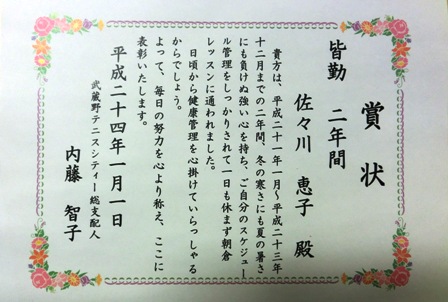 賞状
皆勤 二年間
佐々川 恵子 殿
貴方は、平成二十一年一月～平成二十三年
十二月までの二年間、冬の寒さにも夏の暑さ
にも負けぬ強い心を持ち、ご自分のスケジュー
ル管理をしっかりされて一日も休まず朝倉
レッスンに通われました。
日頃から健康管理を心掛けていらっしゃる
からでしょう。
よって、毎日の努力を心より称え、ここに
表彰いたします。
平成二十四年一月一日
武蔵野テニスシティー総支配人
内藤 智子